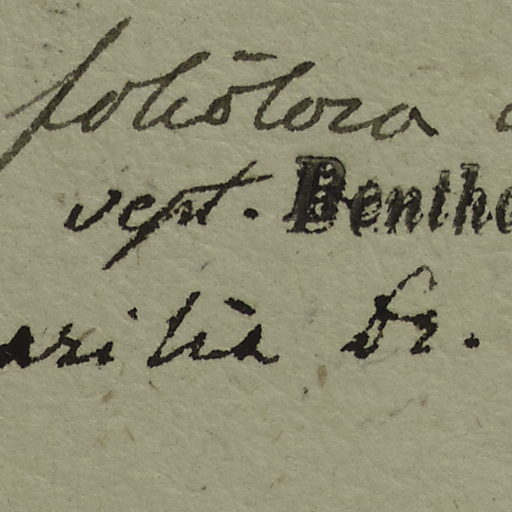 foliolosa
vept. Benth
arilia Dr.